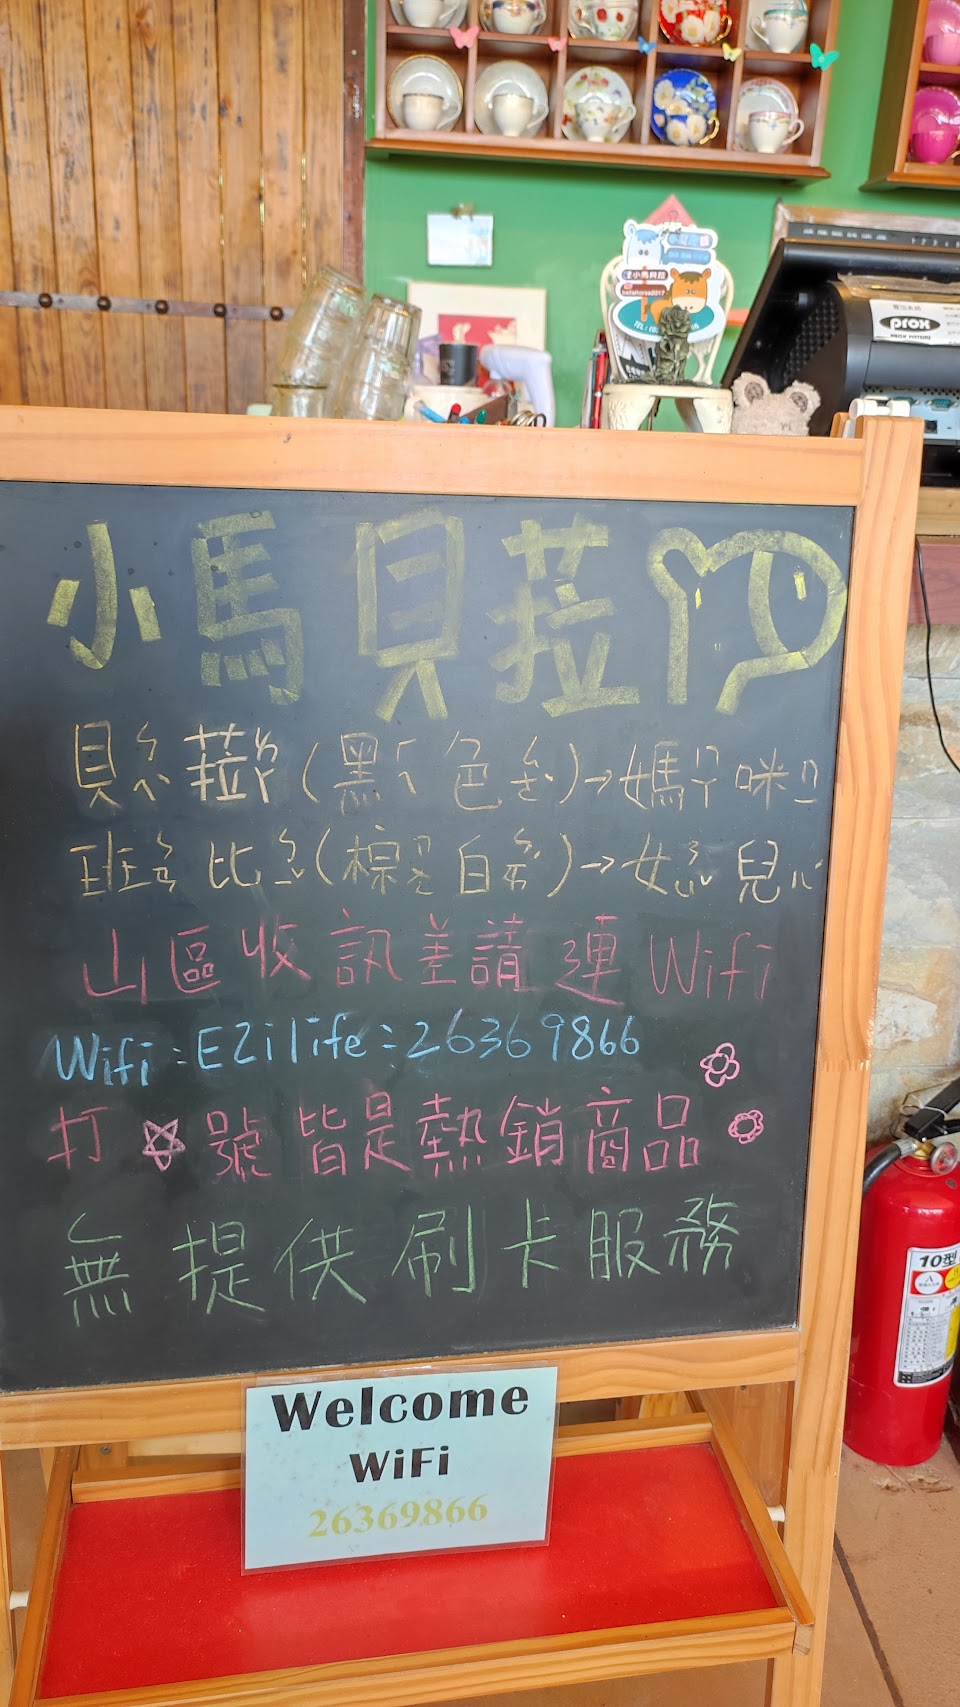 小馬貝菈
bellahorse2017
prox
小馬貝菈
貝ㄟ菈ㄚ(黑ㄟ色ㄜˋ)→媽ㄇㄚ咪ㄇㄧ
班ㄅㄢ比ㄅㄧˇ(棕ㄗㄨㄥ白ㄅㄞˊ)→女ㄋㄩˇ兒ㄦ
山區收訊差請連Wifi
Wifi:EZilife:26369866
打☆號皆是熱銷商品
無提供刷卡服務
10型
Welcome
WiFi
26369866